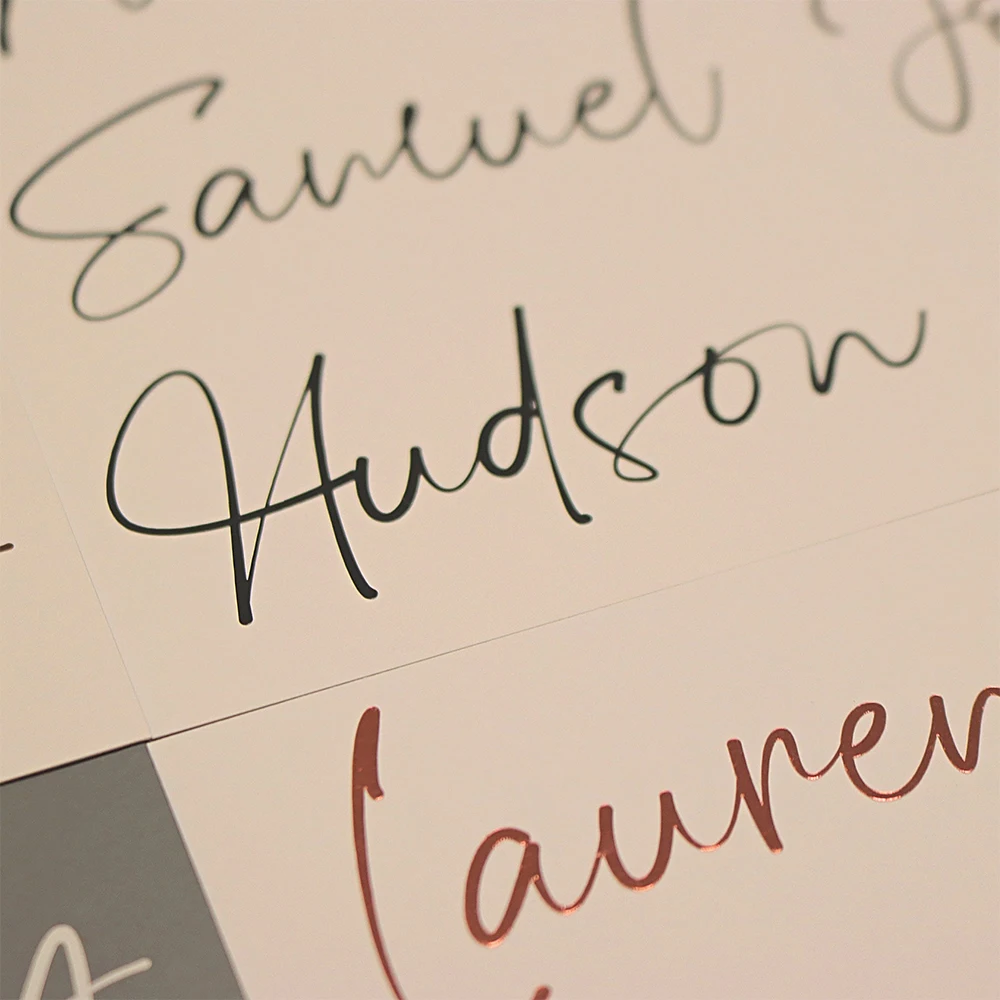 Samuel
Hudson
Lauren